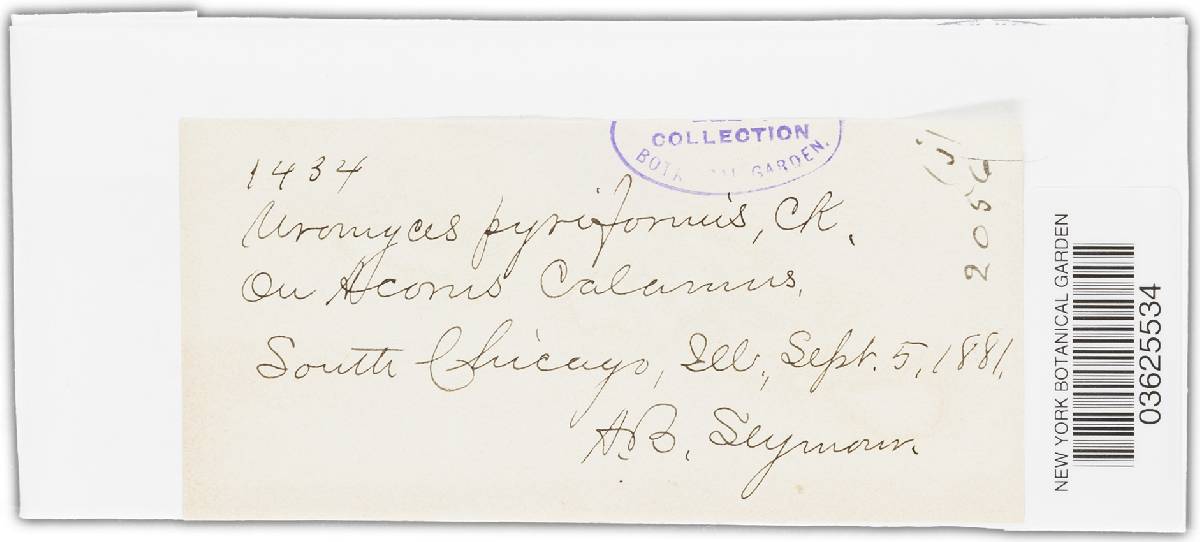 COLLECTION
GARDEN.
1434
Uromyces pyriformis, CK.
On Acorus Calamus.
South Chicago, Ill., Sept. 5, 1881.
A.B. Seymour.
NEW YORK BOTANICAL GARDEN
03625534